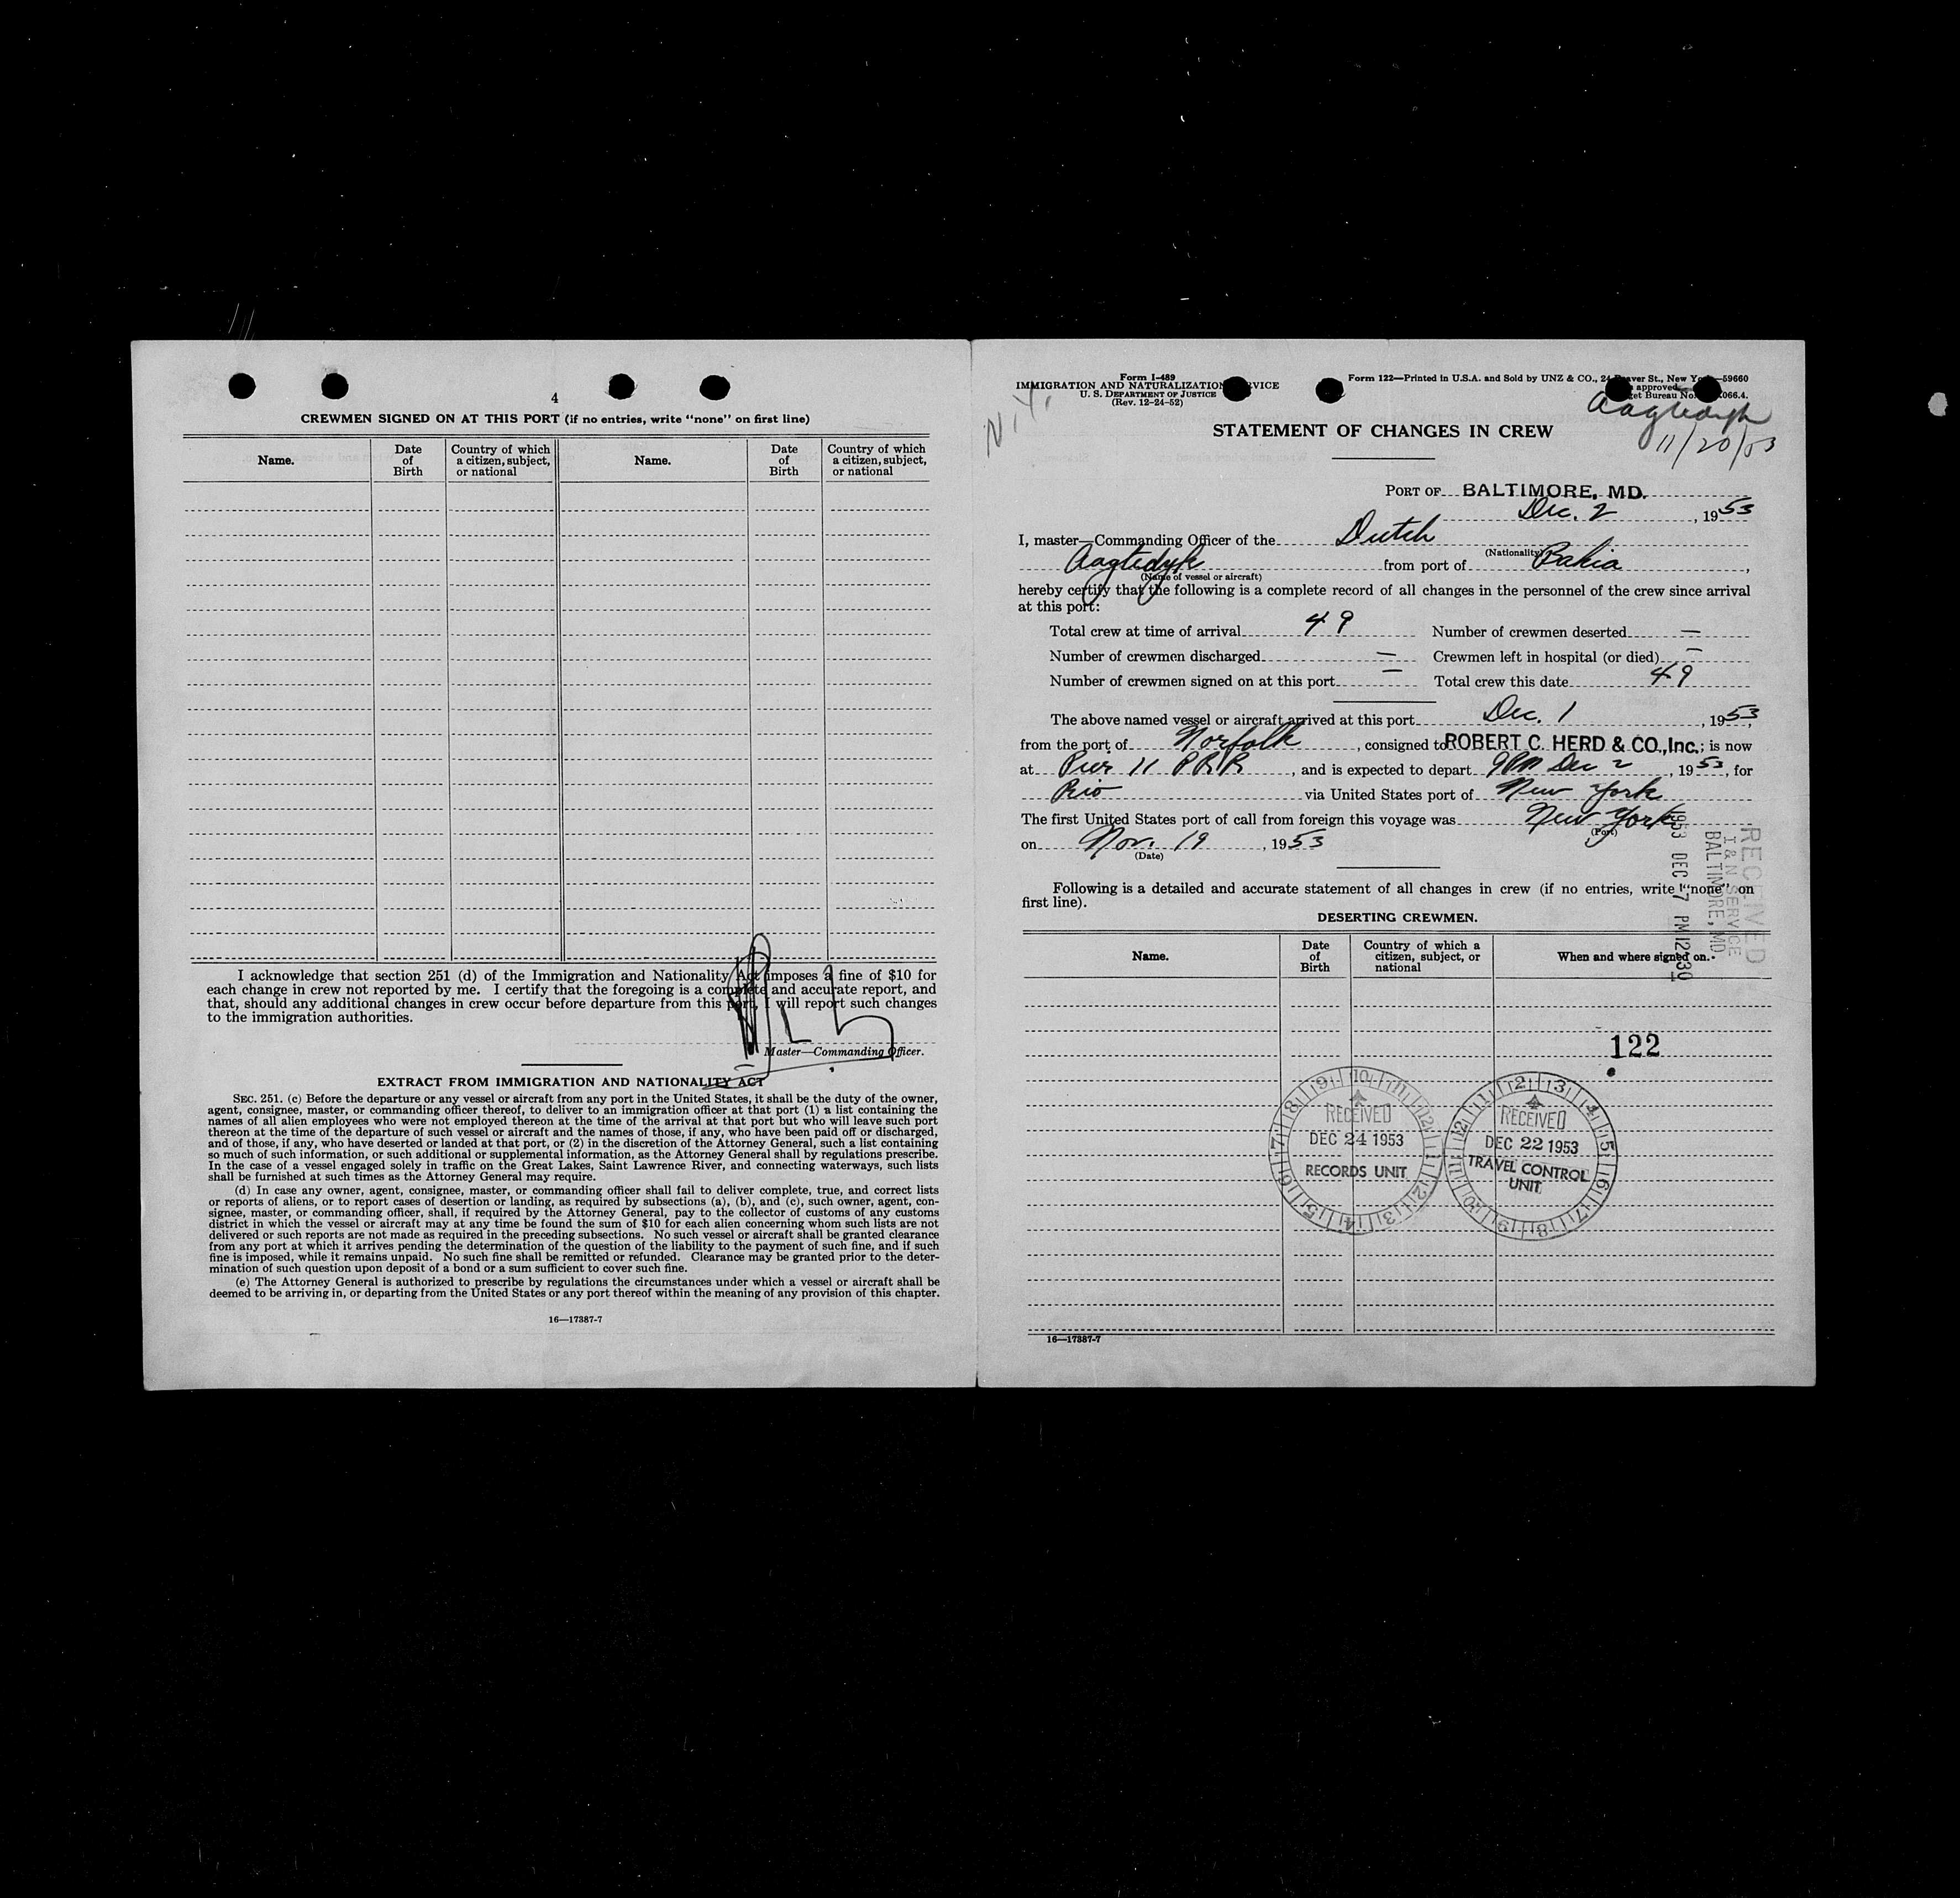 4
CREWMEN SIGNED ON AT THIS PORT (if no entries, write "none" on first line)
Name.
Date
of
Birth
Country of which
a citizen, subject,
or national
Name.
Date
of
Birth
Country of which
a citizen, subject,
or national
I acknowledge that section 251 (d) of the Immigration and Nationality Act imposes a fine of $10 for
each change in crew not reported by me. I certify that the foregoing is a complete and accurate report, and
that, should any additional changes in crew occur before departure from this port, I will report such changes
to the immigration authorities.
Master—Commanding Officer.
EXTRACT FROM IMMIGRATION AND NATIONALITY ACT
SEC. 251. (c) Before the departure or any vessel or aircraft from any port in the United States, it shall be the duty of the owner,
agent, consignee, master, or commanding officer thereof, to deliver to an immigration officer at that port (1) a list containing the
names of all alien employees who were not employed thereon at the time of the arrival at that port but who will leave such port
thereon at the time of the departure of such vessel or aircraft and the names of those, if any, who have been paid off or discharged,
and of those, if any, who have deserted or landed at that port, or (2) in the discretion of the Attorney General, such a list containing
so much of such information, or such additional or supplemental information, as the Attorney General shall by regulations prescribe.
In the case of a vessel engaged solely in traffic on the Great Lakes, Saint Lawrence River, and connecting waterways, such lists
shall be furnished at such times as the Attorney General may require.
(d) In case any owner, agent, consignee, master, or commanding officer shall fail to deliver complete, true, and correct lists
or reports of aliens, or to report cases of desertion or landing, as required by subsections (a), (b), and (c), such owner, agent, con-
signee, master, or commanding officer, shall, if required by the Attorney General, pay to the collector of customs of any customs
district in which the vessel or aircraft may at any time be found the sum of $10 for each alien concerning whom such lists are not
delivered or such reports are not made as required in the preceding subsections. No such vessel or aircraft shall be granted clearance
from any port at which it arrives pending the determination of the question of the liability to the payment of such fine, and if such
fine is imposed, while it remains unpaid. No such fine shall be remitted or refunded. Clearance may be granted prior to the deter-
mination of such question upon deposit of a bond or a sum sufficient to cover such fine.
(e) The Attorney General is authorized to prescribe by regulations the circumstances under which a vessel or aircraft shall be
deemed to be arriving in, or departing from the United States or any port thereof within the meaning of any provision of this chapter.
16—17387-7
N.Y.
Form I-489
IMMIGRATION AND NATURALIZATION SERVICE
U. S. DEPARTMENT OF JUSTICE
(Rev. 12-24-52)
Form 122—Printed in U.S.A. and Sold by UNZ & CO., 24 Beaver St., New York—59660
approved.
Budget Bureau No. 066.4.
Aagtedyk
11/20/53
STATEMENT OF CHANGES IN CREW
PORT OF BALTIMORE, MD.
Dec. 2, 1953
I, master—Commanding Officer of the Dutch
(Nationality)
Aagtedyk from port of Bahia,
(Name of vessel or aircraft)
hereby certify that the following is a complete record of all changes in the personnel of the crew since arrival
at this port:
Total crew at time of arrival 49 Number of crewmen deserted —
Number of crewmen discharged — Crewmen left in hospital (or died) —
Number of crewmen signed on at this port — Total crew this date 49
The above named vessel or aircraft arrived at this port Dec. 1, 1953,
from the port of Norfolk, consigned to ROBERT C. HERD & CO., Inc.; is now
at Pier 11 PRR, and is expected to depart 9PM Dec 2, 1953, for
Rio via United States port of New York
The first United States port of call from foreign this voyage was New York
(Port)
on Nov. 19, 1953
(Date)
RECEIVED
I & N SERVICE
BALTIMORE, MD.
1953 DEC 7 PM 12 30
Following is a detailed and accurate statement of all changes in crew (if no entries, write "none" on
first line).
DESERTING CREWMEN.
Name.
Date
of
Birth
Country of which a
citizen, subject, or
national
When and where signed on.
122
RECEIVED
DEC 24 1953
RECORDS UNIT
RECEIVED
DEC 22 1953
TRAVEL CONTROL
UNIT
16—17387-7